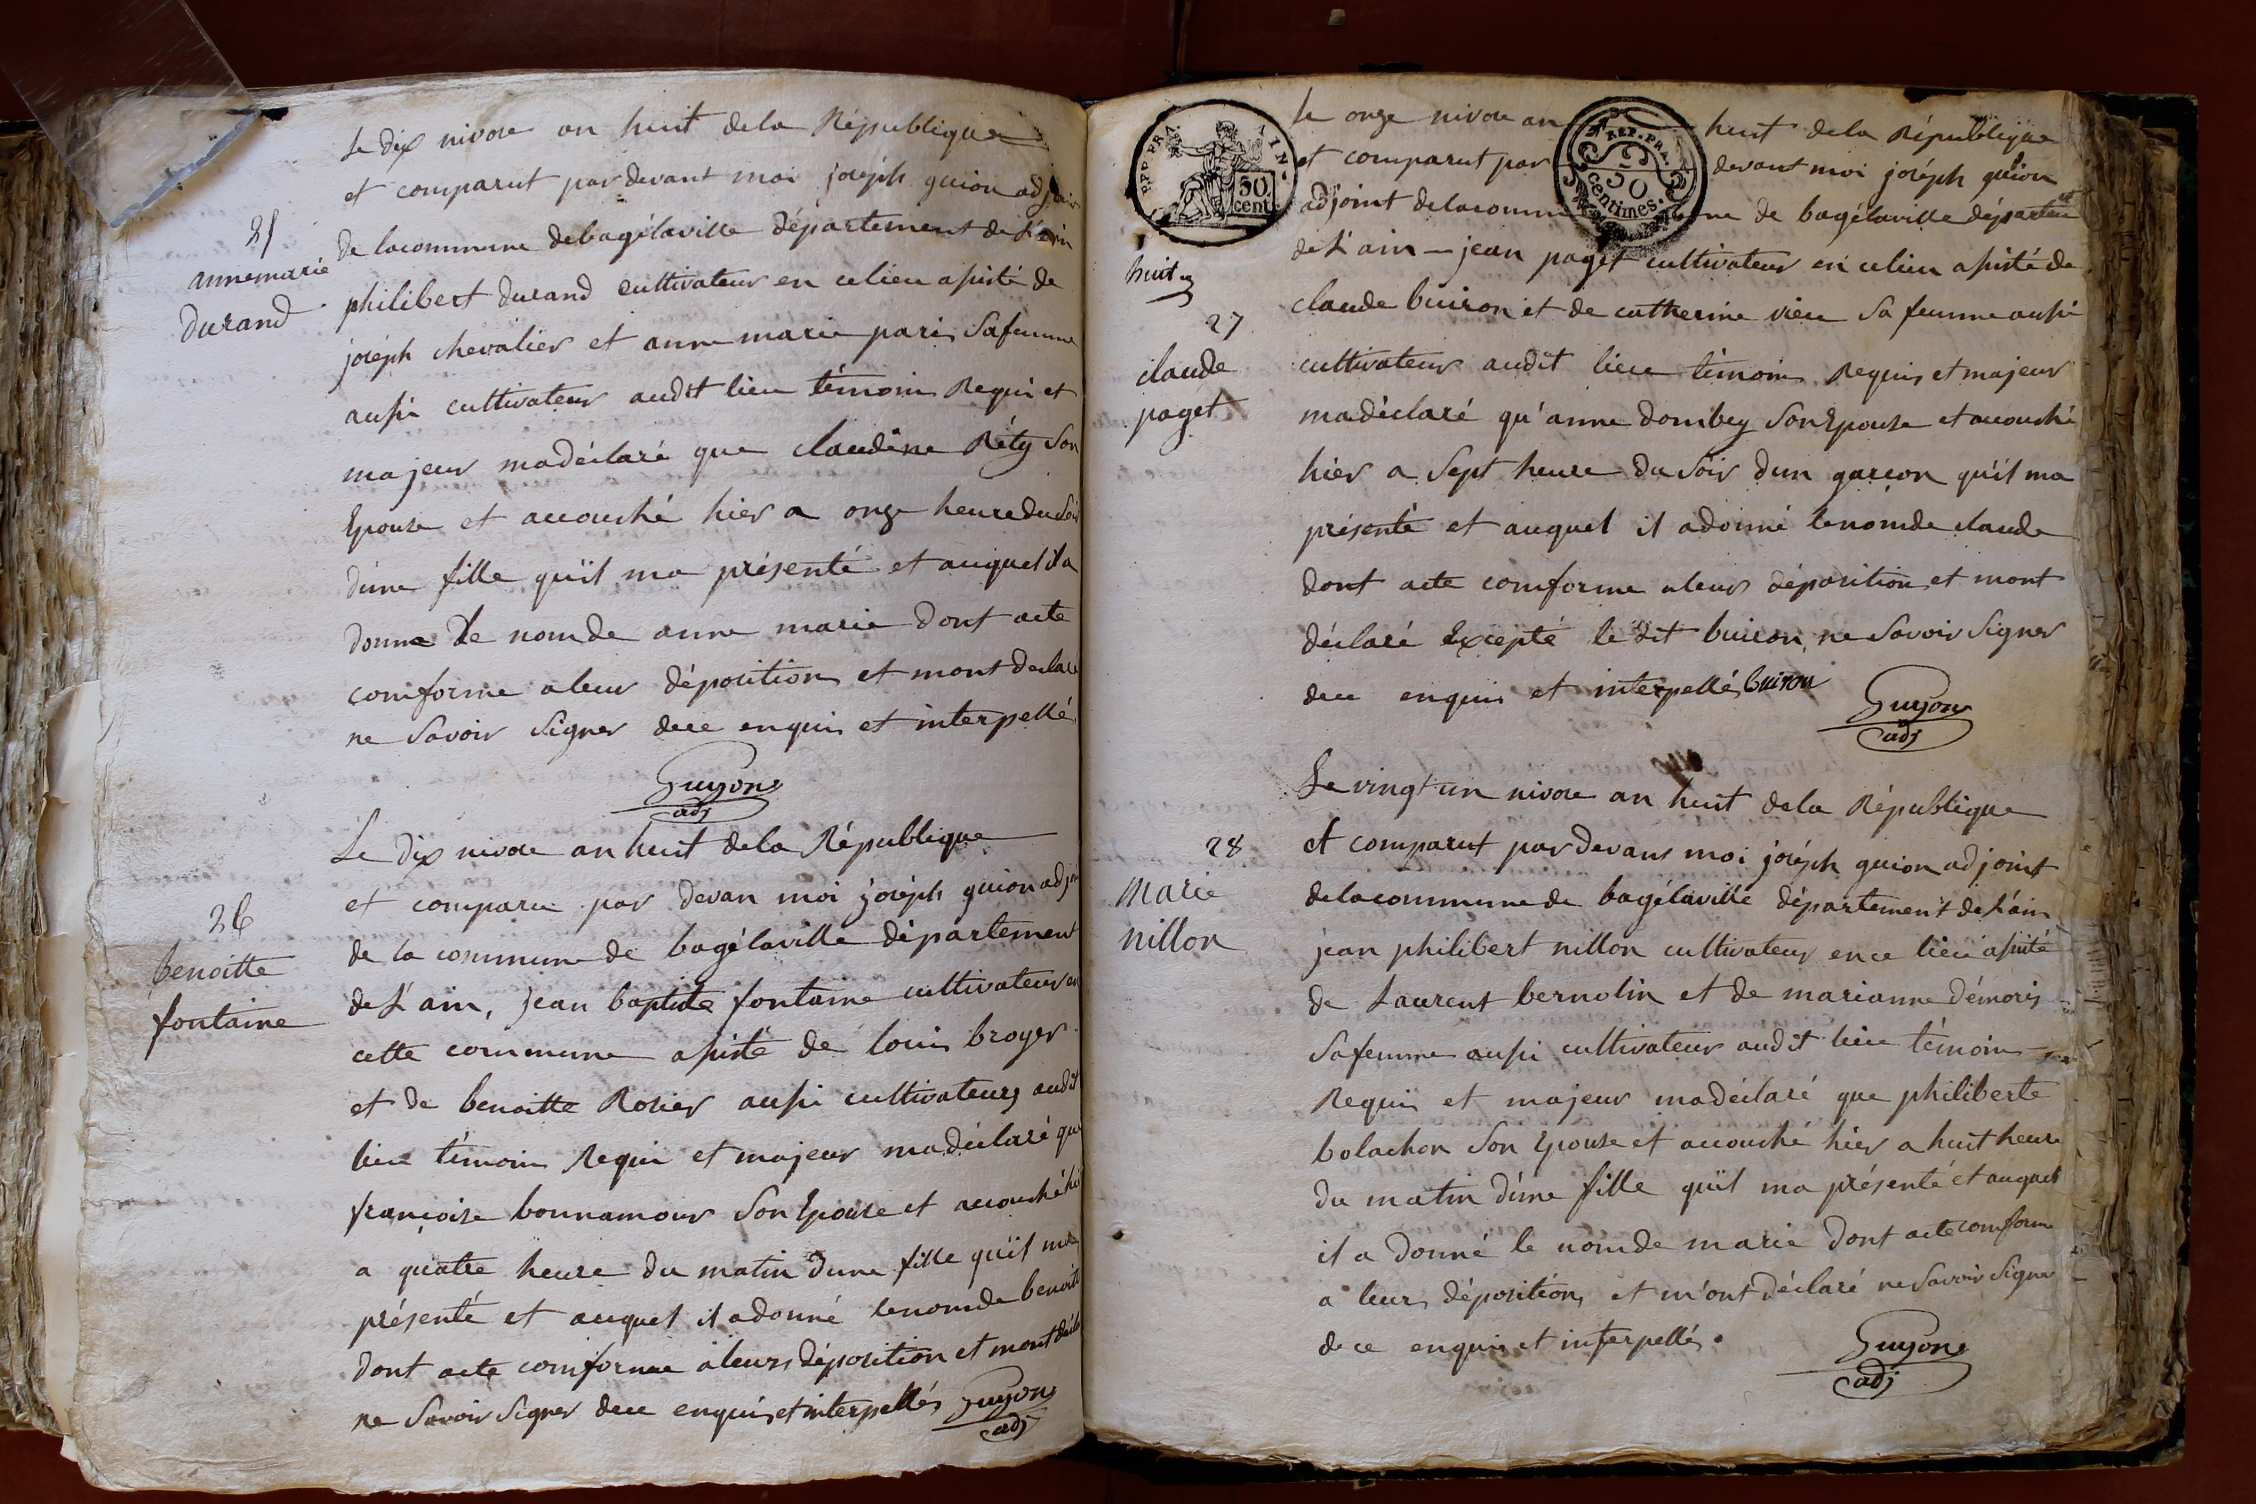 Le dix nivose an huit dela République
et comparut par devant moi joséph guion adjoin
de lacommune debagélaville département de L'ain
25
annemarie
durand
philibert durand cultivateur en celieu assisté de
joséph chevalier et anne marie paris Safemme
aussi cultivateur audit lieu témoin Requi et
majeur madéclaré que claudine Réty Son
Epouse et accouché hier a onze heure du Soir
d'une fille qu'il ma présenté et auquel il a
donne Le nom de anne marie dont acte
comforme aleur déposition et mont declaré
ne Savoir Signer dece enquis et interpellé
Guyon
adj
Le dix nivose an huit dela République
et comparu par devan moi joséph guion adjoi
26
benoitte
fontaine
de la commune de bagélaville département
de L'ain, jean baptiste fontaine cultivateur en
cette commune assisté de louis broyer
et de benoitte Rosier aussi cultivateurs audit
lieu témoin Requi et majeur madéclaré que
françoise bonnamour Son Epouse et accouché hier
a quatre heure du matin d'une fille qu'il ma
présenté et auquel il adonné lenomde benoite
dont acte comforme a leurs déposition et mont déclaré
ne Savoir Signer dece enquis et interpellés Guyon
adj
REP. FRA
50
cent.
REP. FRA.
50
centimes.
Le onze nivose an huit dela République
et comparut par devant moi joséph guion
adjoint delacommune de bagélaville département
de L'ain — jean paget cultivateur en celieu assisté de
huit
27
claude
paget
claude buiron et de catherine vieu Sa femme aussi
cultivateur audit lieu témoin Requis et majeur
madéclaré qu'anne dombey Son Epouse et accouché
hier a Sept heure du Soir d'un garcon qu'il ma
présenté et auquel il adonné lenomde claude
dont acte comforme aleur déposition et mont
déclaré Excepté le dit buiron ne Savoir Signer
dece enquis et interpellés buiron
Guyon
adj
Le vingt un nivose an huit dela République
28
marie
nillon
et comparut par devans moi joséph guion adjoint
delacommune de bagélaville département de L'ain
jean philibert nillon cultivateur en ce lieu assisté
de Laurent bernolin et de marianne démoris
Safemme aussi cultivateur audit lieu témoin
Requis et majeur madéclaré que philiberte
bolachon Son Epouse et accouché hier a huit heure
du matin d'une fille qu'il ma présenté et auquel
il a donné le nomde marie dont acte comforme
a leurs déposition et m'ont déclaré ne Savoir Signer
de ce enquis et interpellés.
Guyon
adj